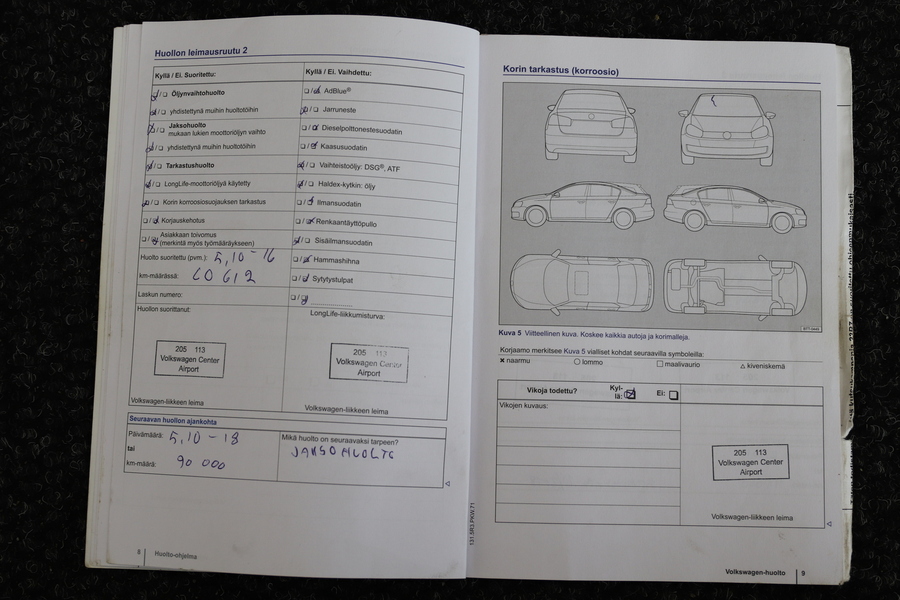 Huollon leimausruutu 2
Kyllä / Ei. Suoritettu:
Öljynvaihtohuolto
yhdistettynä muihin huoltotöihin
Jaksohuolto
mukaan lukien moottoriöljyn vaihto
yhdistettynä muihin huoltotöihin
Tarkastushuolto
LongLife-moottoriöljyä käytetty
Korin korroosiosuojauksen tarkastus
Korjauskehotus
Asiakkaan toivomus
(merkintä myös työmääräykseen)
Huolto suoritettu (pvm.): 5,10-16
km-määrässä: 60612
Laskun numero:
Huollon suorittanut:
205 113
Volkswagen Center
Airport
Volkswagen-liikkeen leima
Kyllä / Ei. Vaihdettu:
AdBlue®
Jarruneste
Dieselpolttonestesuodatin
Kaasusuodatin
Vaihteistoöljy: DSG®, ATF
Haldex-kytkin: öljy
Ilmansuodatin
Renkaantäyttöpullo
Sisäilmansuodatin
Hammashihna
Sytytystulpat
LongLife-liikkumisturva:
205 113
Volkswagen Center
Airport
Volkswagen-liikkeen leima
Seuraavan huollon ajankohta
Päivämäärä: 5,10-18
tai
km-määrä: 90 000
Mikä huolto on seuraavaksi tarpeen?
JAKSOHUOLTO
8 Huolto-ohjelma
131.5R3.PKW.71
Korin tarkastus (korroosio)
Kuva 5 Viitteellinen kuva. Koskee kaikkia autoja ja korimalleja.
Korjaamo merkitsee Kuva 5 vialliset kohdat seuraavilla symboleilla:
× naarmu ○ lommo □ maalivaurio △ kiveniskemä
Vikoja todettu? Kyl-
lä: Ei:
Vikojen kuvaus:
205 113
Volkswagen Center
Airport
Volkswagen-liikkeen leima
Volkswagen-huolto 9